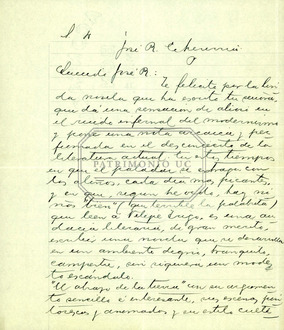 José R. Echeverría
Querido José R.: te felicito por la lin
da novela que ha escrito tu
que da una sensación de alivio en
el ruido infernal del modernismo
y pone una nota arcaica y per
fumada en el desconcierto de la
literatura actual. En estos tiempos
en que el paladar se estraga con
los aliños, cada día más picantes,
y en que, según he oído, hay ni
nas "bien" (que terrible la palabrita)
que leen a Felipe Trigo, es una au
dacia literaria, de gran mérito,
escribir una novela que se desarrolla
en un ambiente digno, tranquilo,
campestre, sin siquiera un modes
to escándalo.
"El abrazo de la tierra" en su argumento
sencillo é interesante, sus escenas pin
torescas y animadas y su estilo culto
PATRIMONIO UC